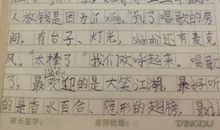 人放钱是因为了xiǎng”到了唱歌的房
间，有台子、灯光，还有麦克
风。“太棒了”我们欢呼起来。唱歌
了，最欢迎的是大笑江湖，最好听
的是香水百合、隐形的翅膀，最
家长签字： 老师批语：
TANGDU